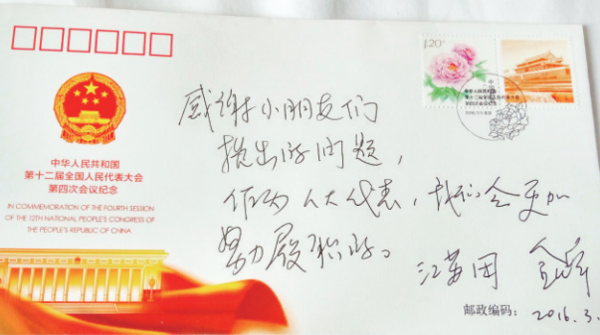 1.20元
中国邮政
第十二届全国人民代表大会
第四次会议纪念
中华人民共和国
第十二届全国人民代表大会
第四次会议纪念
IN COMMEMORATION OF THE FOURTH SESSION
OF THE 12TH NATIONAL PEOPLE'S CONGRESS OF
THE PEOPLE'S REPUBLIC OF CHINA
感谢小朋友们
提出的问题，
作为人大代表，我们会更加
努力履职的。
江苏团
邮政编码：
2016.3.